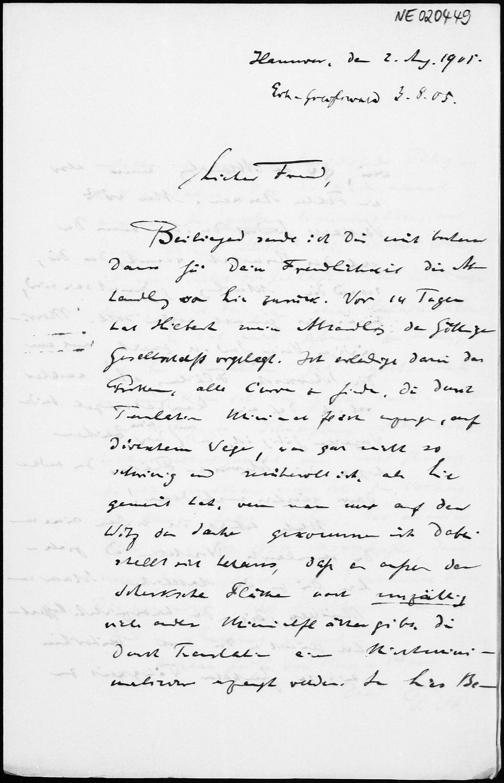 NE020449
Hannover, den 2. Aug. 1905.
Greifswald 3.8.05.
Lieber Freund,
Beiliegend sende ich Dir mit bestem
Dank für Deine Freundlichkeit die Ab-
handlg von Lie zurück. Vor 14 Tagen
hat Hilbert meine Abhandlg der Göttinger
Gesellschaft vorgelegt. Ich erledige darin das
Problem, alle Curven zu finden, die durch
Translation Minimalflächen erzeugen, auf
direktem Wege, was gar nicht so
schwierig und mühevoll ist, als Lie
gemeint hat, wenn man nur auf den
Witz der Sache gekommen ist. Dabei
stellt sich heraus, daß es außer der
Scherkschen Fläche noch unzählig
viele andere Minimalflächen gibt, die
durch Translation einer Nichtmini-
malcurve erzeugt werden. In Lies Be-